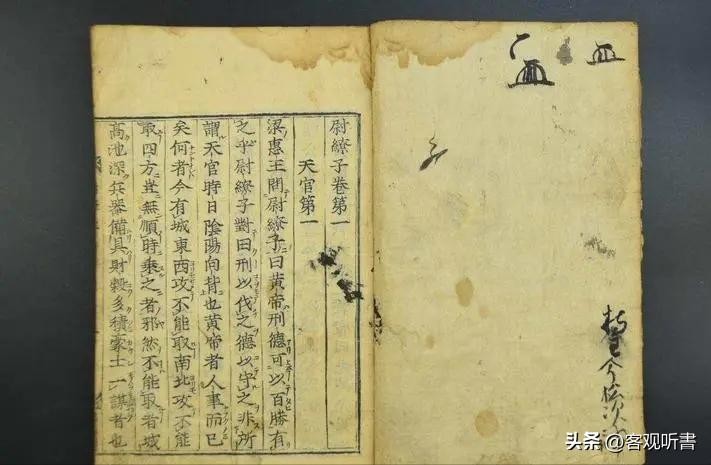 尉繚子卷第一
天官第一
梁惠王問尉繚子曰黃帝刑德可以百勝有
之乎尉繚子對曰刑以伐之德以守之非所
謂天官時日陰陽向背也黃帝者人事而已
矣何者今有城東西攻不能取南北攻不能
取四方豈無順時乘之者邪然不能取者城
高池深兵器備具財穀多積豪士一謀者也
头条 @客观听書